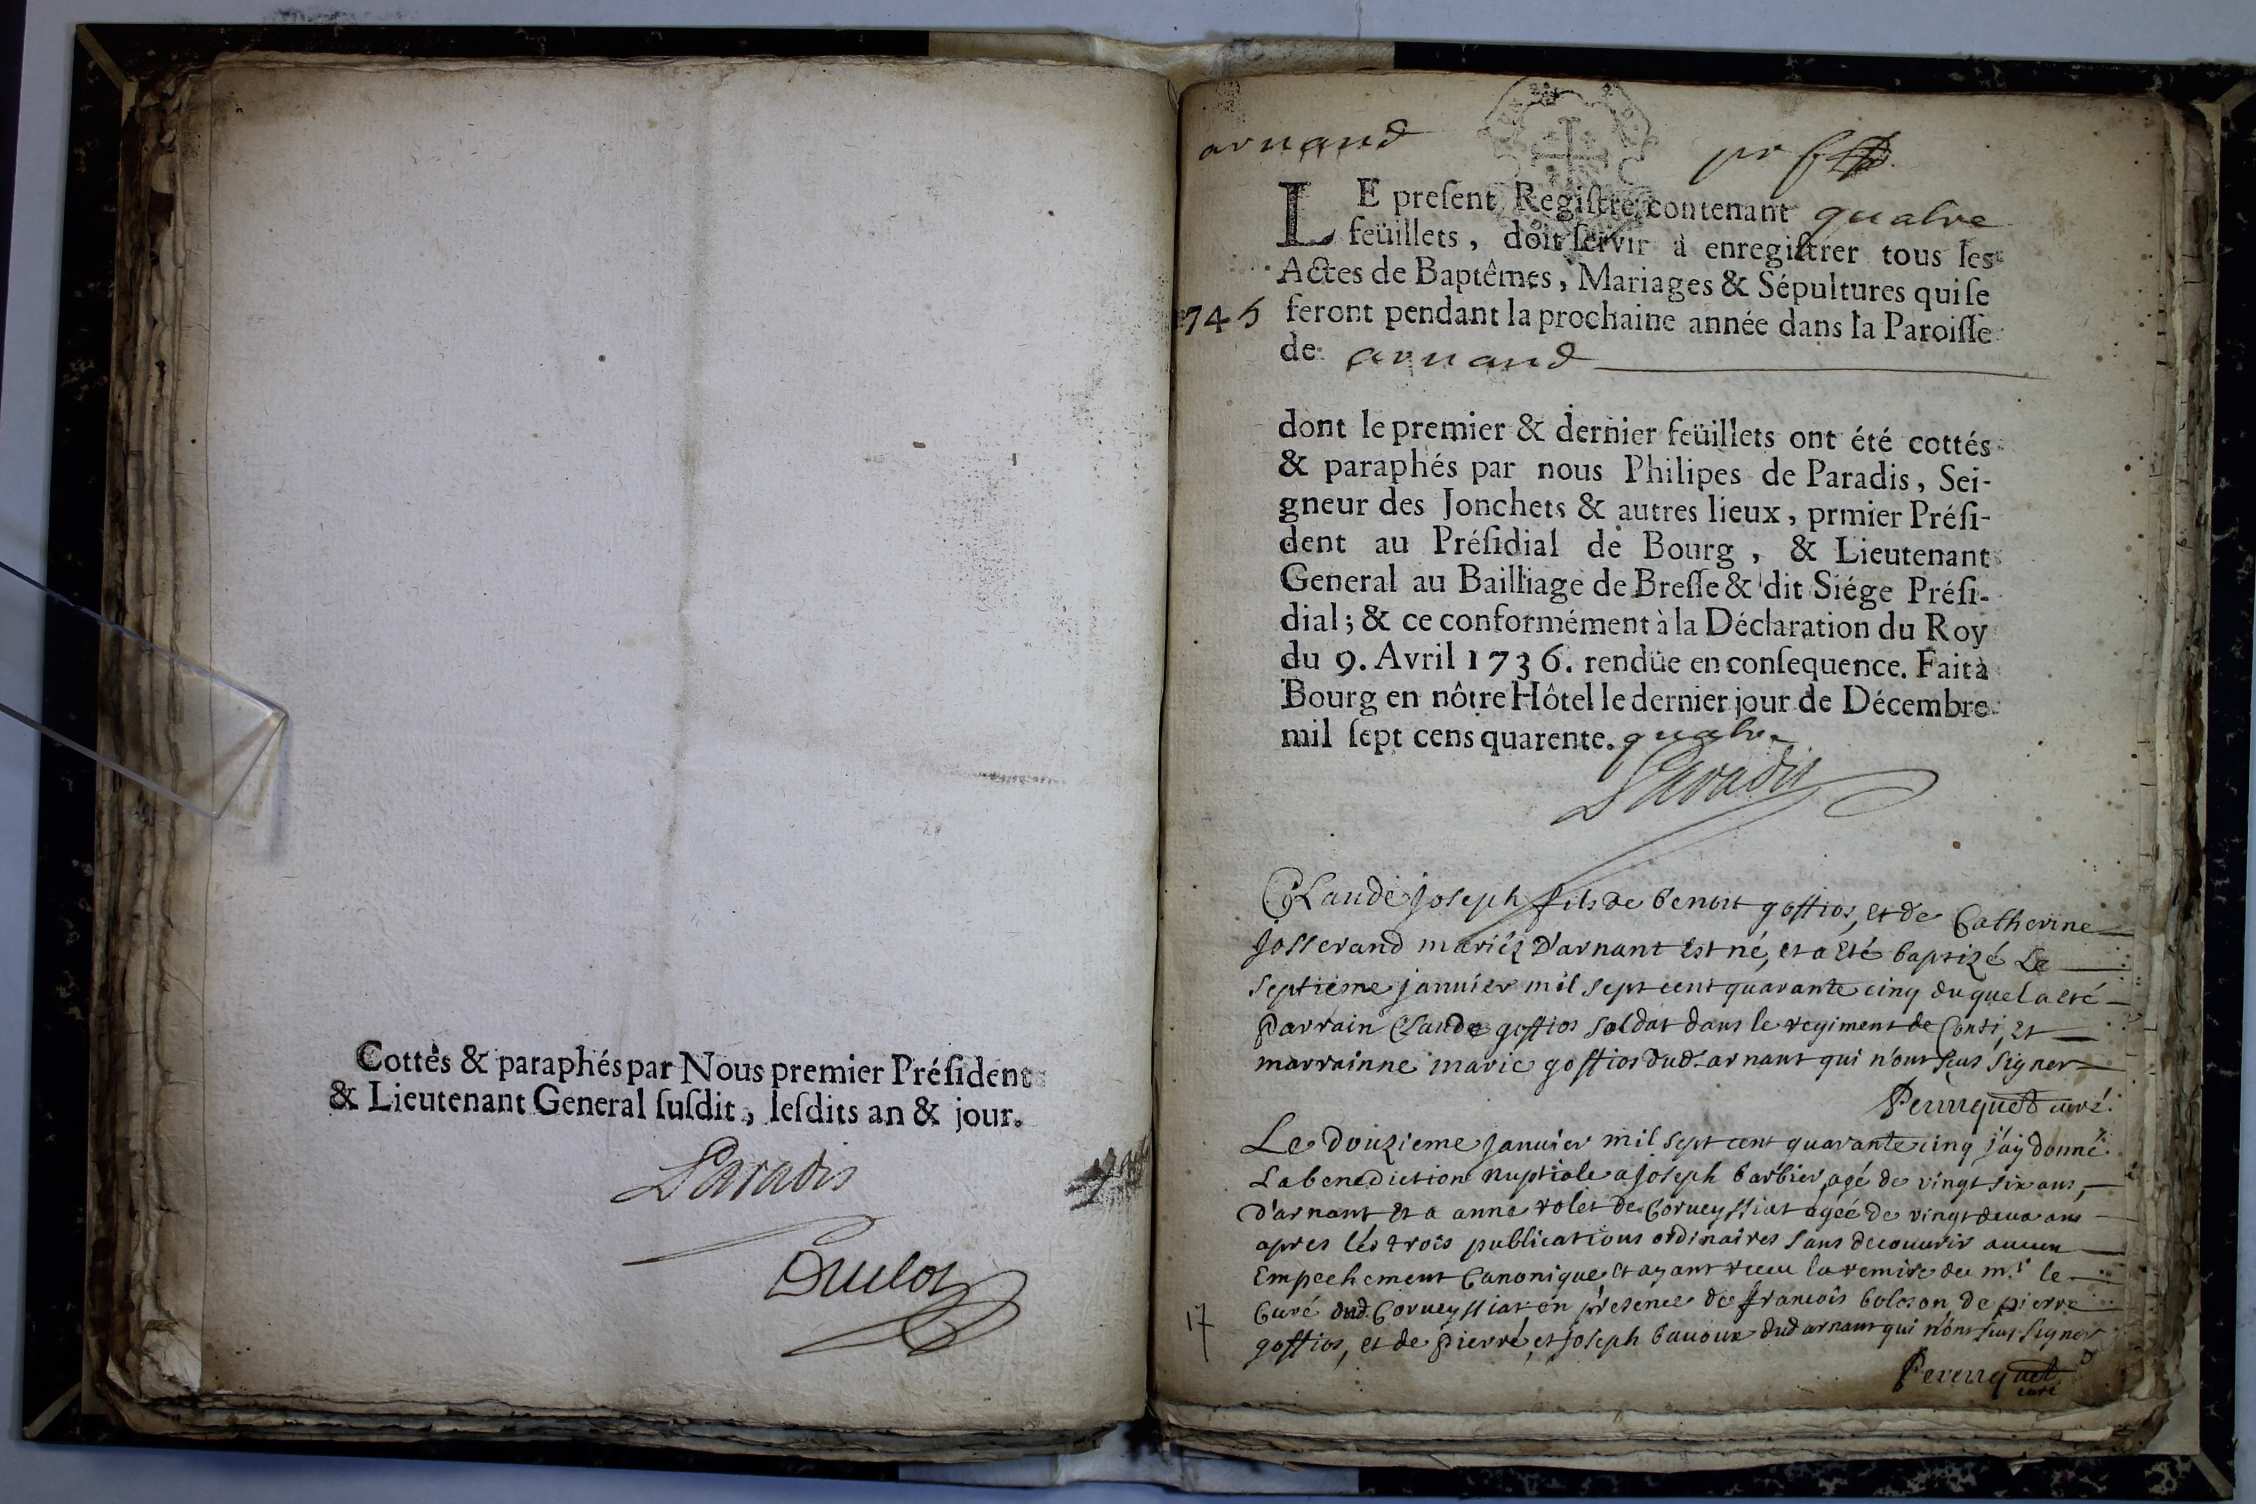 Cottés & paraphés par Nous premier Président
& Lieutenant General susdit, lesdits an & jour.
Paradis
arnand
LE present Registre contenant quatre
feüillets, doit servir à enregistrer tous les
Actes de Baptêmes, Mariages & Sépultures qui se
1745 feront pendant la prochaine année dans la Paroisse
de arnand
dont le premier & dernier feüillets ont été cottés
& paraphés par nous Philipes de Paradis, Sei-
gneur des Jonchets & autres lieux, prmier Prési-
dent au Présidial de Bourg, & Lieutenant
General au Bailliage de Bresse & dit Siége Prési-
dial; & ce conformément à la Déclaration du Roy
du 9. Avril 1736. rendüe en consequence. Fait à
Bourg en nôtre Hôtel le dernier jour de Décembre
mil sept cens quarente. quatre
Paradis
Claude joseph fils de benoit goffios, et de Catherine
josserand mariéz D'arnant Est né, et a eté baptizé Le
septieme janvier mil sept cent quarante cinq duquel a eté
parrain Claude goffios soldat dans le regiment de Conti, Et
marrainne marie goffios dud. arnant qui n'ont sçus signer
curé.
Le douzieme janvier mil sept cent quarante cinq j'ay donné
La benediction nuptiale a joseph barbier, agé de vingt six ans,
d'arnant et a anne rolet de Corveyssiat agéé de vingt deux ans
apres les trois publications ordinaires sans decouvrir aucun
Empechement Canonique, et ayant receu la remise de mr. le
Curé dud. Corveyssiat en presence de francois bolozon, de pierre
17 goffios, et de pierre, et joseph bavoux dud arnant qui n'ont sçus signer
curé